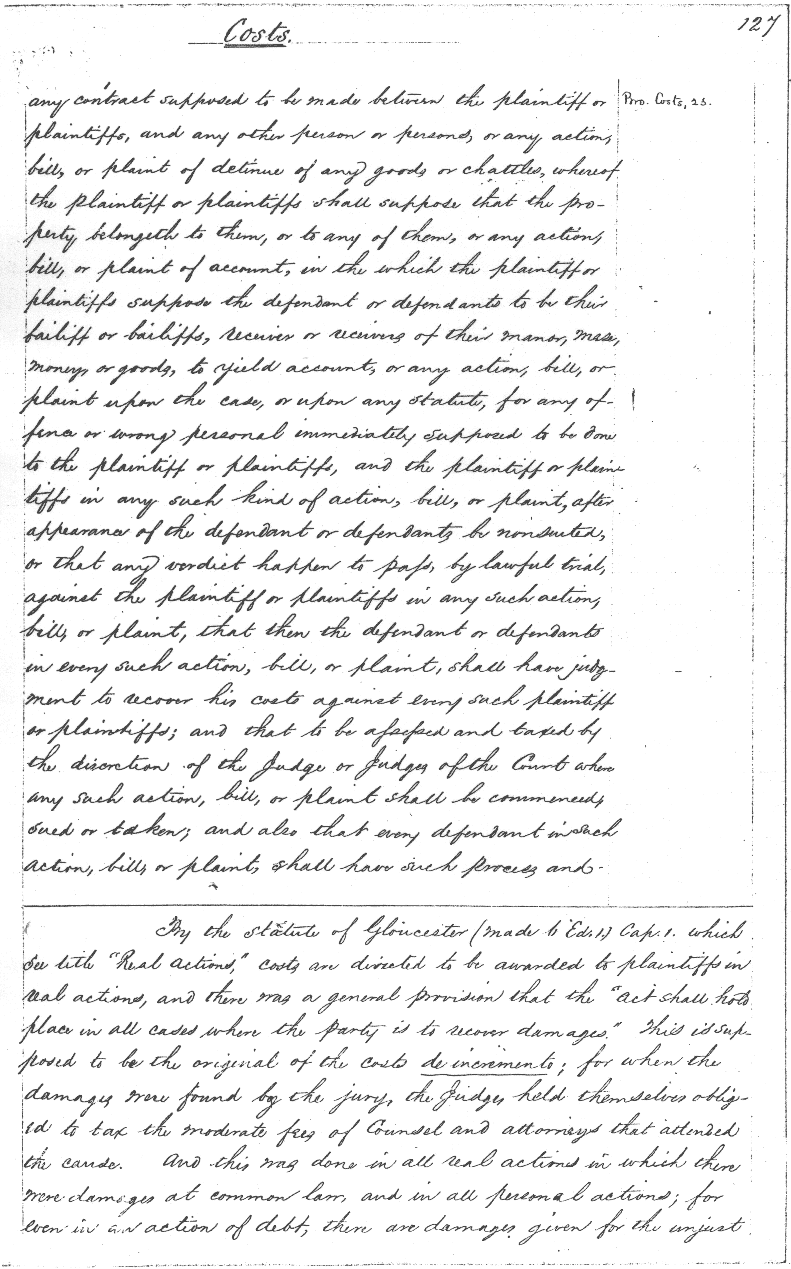 Costs.
127
any contract supposed to be made between the plaintiff or
Pro. Costs, 23.
plaintiffs, and any other person or persons, or any action,
bill, or plaint of detinue of any goods or chattles, whereof
the plaintiff or plaintiffs shall suppose that the pro-
perty belongeth to them, or to any of them, or any action,
bill, or plaint of account, in the which the plaintiff or
plaintiffs suppose the defendant or defendants to be their
bailiff or bailiffs, receiver or receivers of their manor, mese,
money, or goods, to yield account, or any action, bill, or
plaint upon the case, or upon any statute, for any of-
fence or wrong personal immediately supposed to be done
to the plaintiff or plaintiffs, and the plaintiff or plain-
tiffs in any such kind of action, bill, or plaint, after
appearance of the defendant or defendants, be nonsuited,
or that any verdict happen to pass, by lawful trial,
against the plaintiff or plaintiffs in any such action,
bill, or plaint, that then the defendant or defendants
in every such action, bill, or plaint, shall have judg-
ment to recover his costs against every such plaintiff
or plaintiffs; and that to be assessed and taxed by
the discretion of the Judge or Judges of the Court where
any such action, bill, or plaint shall be commenced,
sued or taken; and also that every defendant in such
action, bill, or plaint, shall have such process and
By the statute of Gloucester (made 6 Ed. 1.) Cap. 1. which
see title "Real actions," costs are directed to be awarded to plaintiffs in
real actions, and there was a general provision that the "act shall hold
place in all cases where the party is to recover damages." This is sup-
posed to be the original of the costs de incremento; for when the
damages were found by the jury, the Judges held themselves oblig-
ed to tax the moderate fees of Counsel and attorneys that attended
the cause. And this was done in all real actions in which there
were damages at common law, and in all personal actions; for
even in an action of debt, there are damages given for the unjust